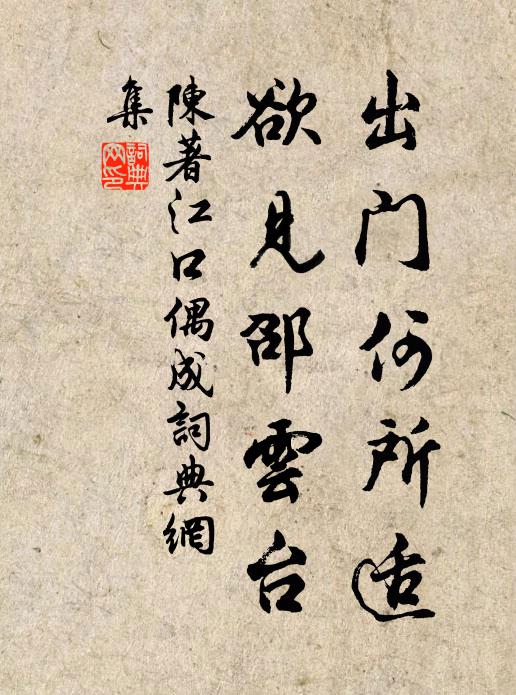 出门何所适
欲见邵雲台
陳著江口偶成詞典網
集
詞典
网印